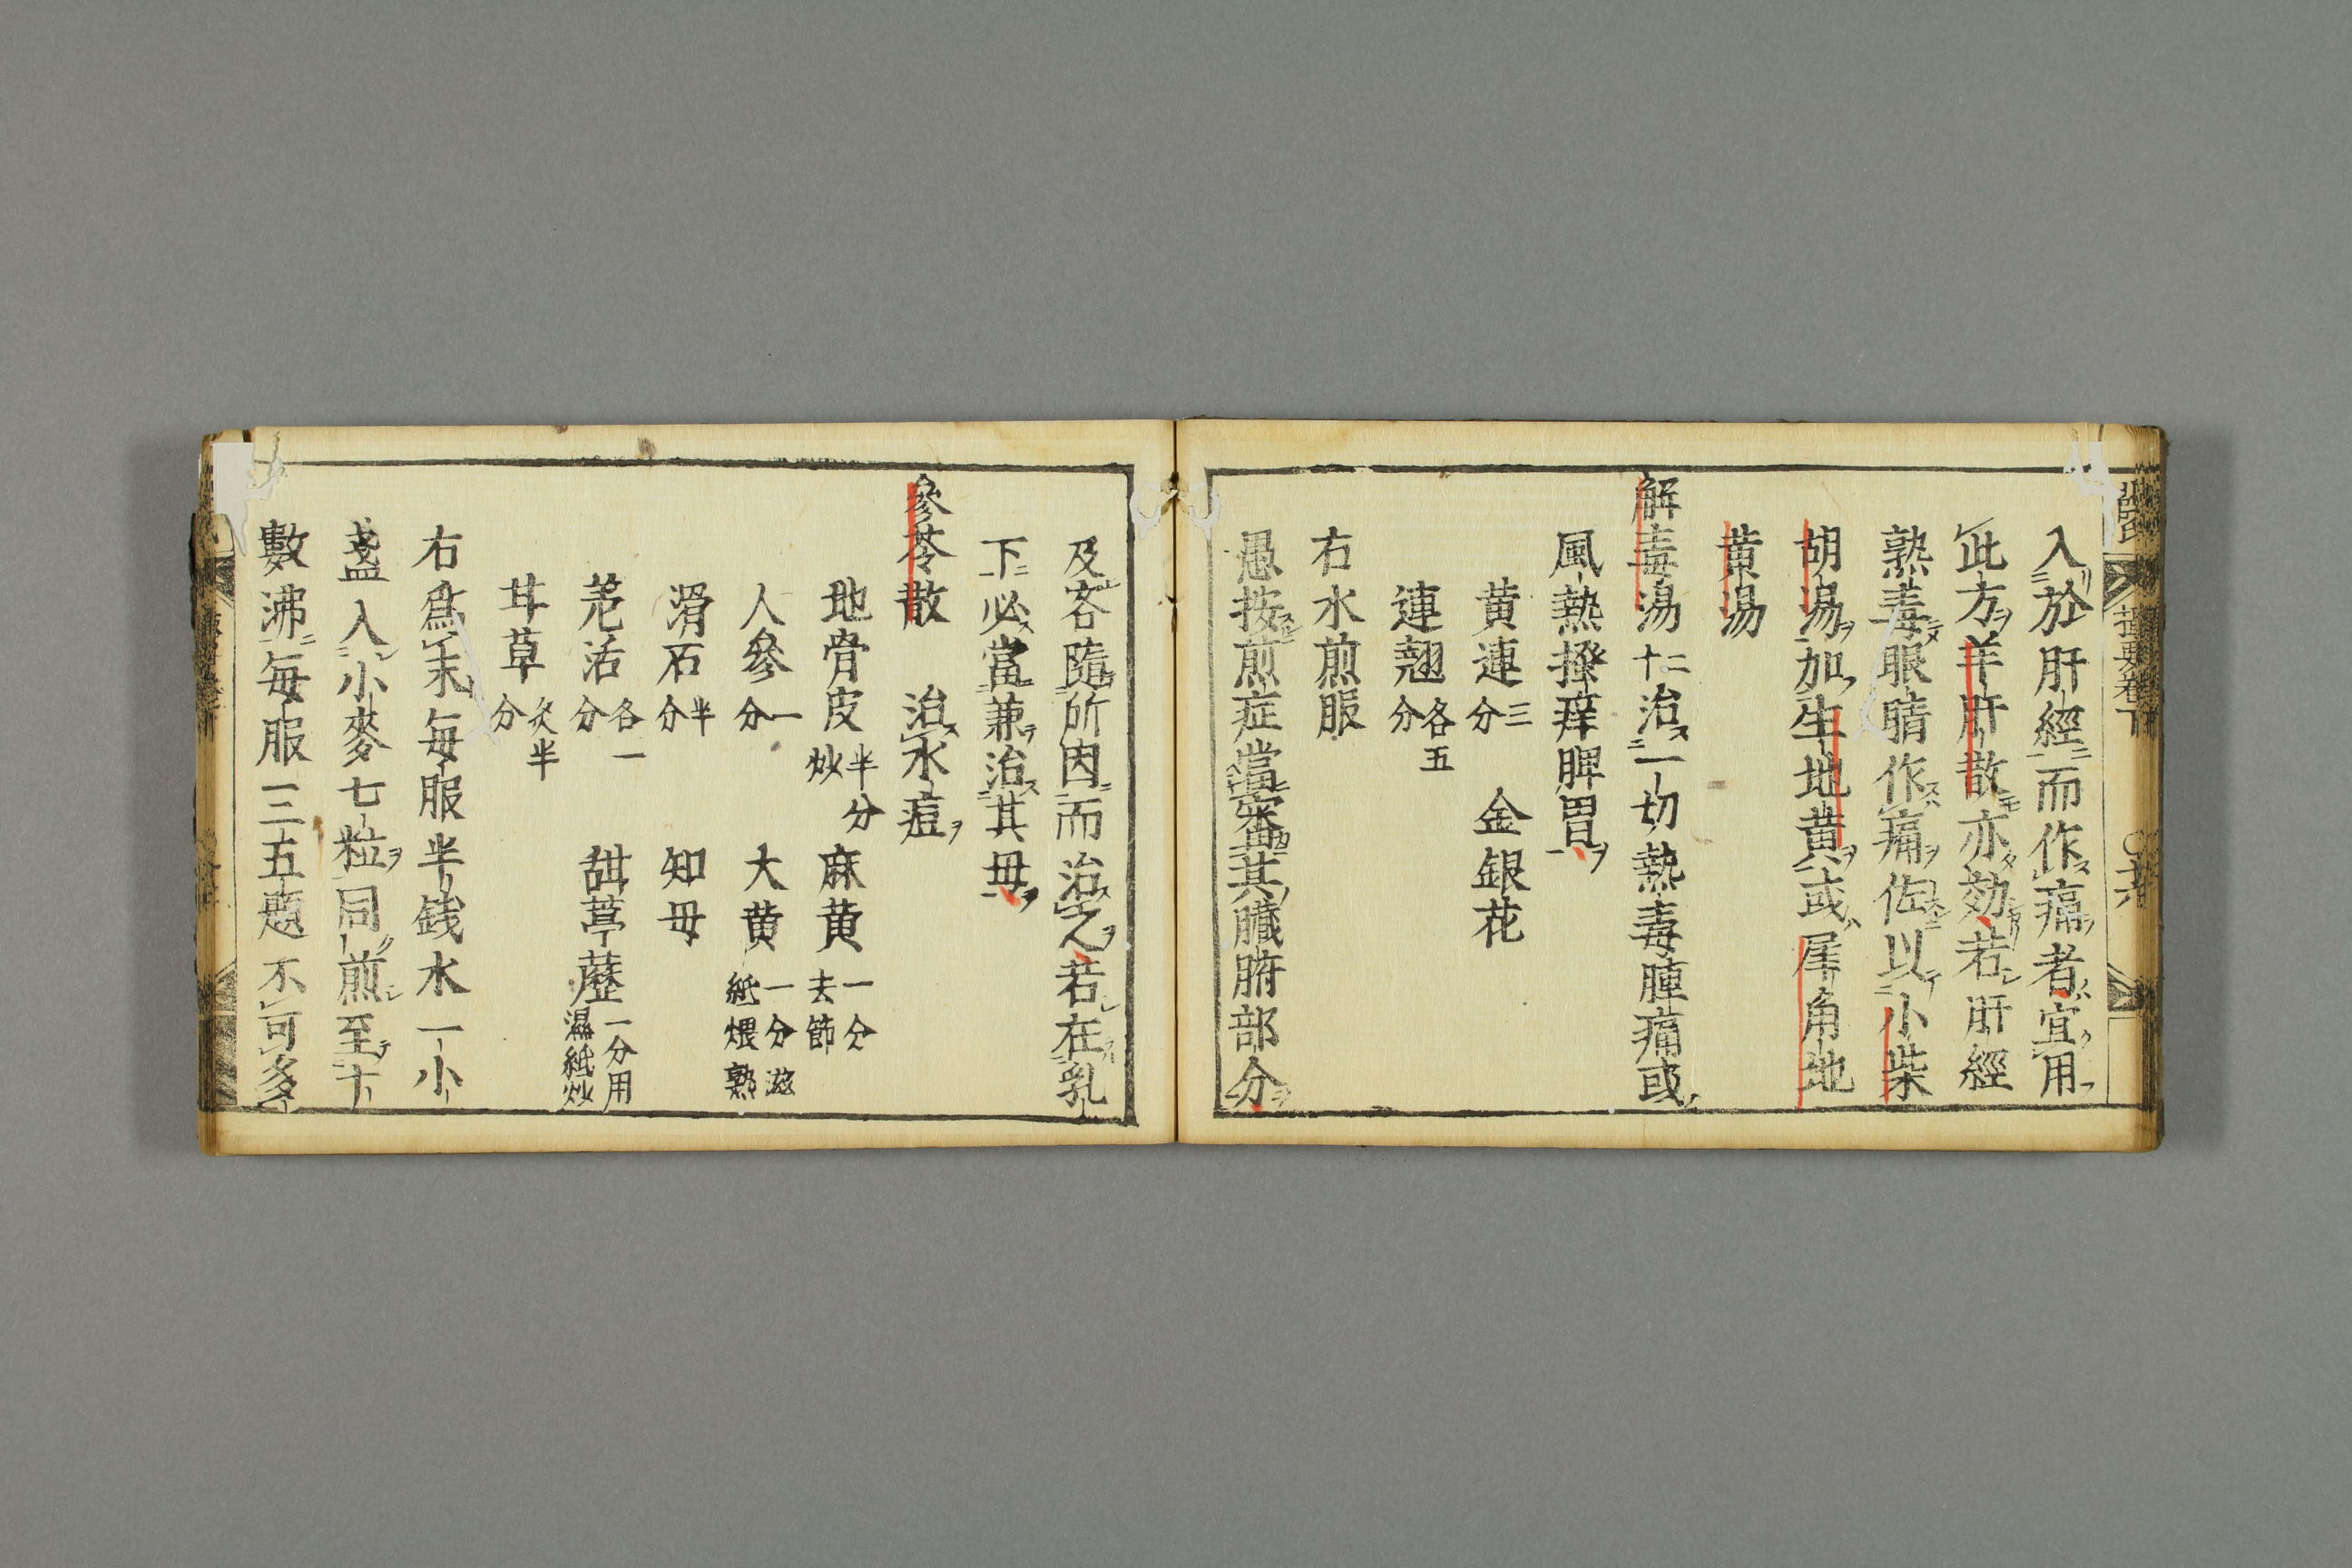 入於肝經而作痛者宜用
此方羊肝散亦効若肝經
熱毒眼睛作痛佐以小柴
胡湯加生地黄或犀角地
黄湯
解毒湯 十二 治一切熱毒腫痛或
風熱搔痒脾胃
黄連 三分 金銀花
連翹 各五分
右水煎服
愚按煎症當審其臓腑部分
及客隨所因而治之若在乳
下必當兼治其母
參苓散 治水痘
地骨皮 半分炒 麻黄 一分去節
人參 一分 大黄 一分滋紙煨熟
滑石 半分 知母
羌活 各一分 甜葶藶 一分用濕紙炒
甘草 炙半分
右爲末每服半錢水一小
盞入小麥七粒同煎至十
數沸每服三五 不可多